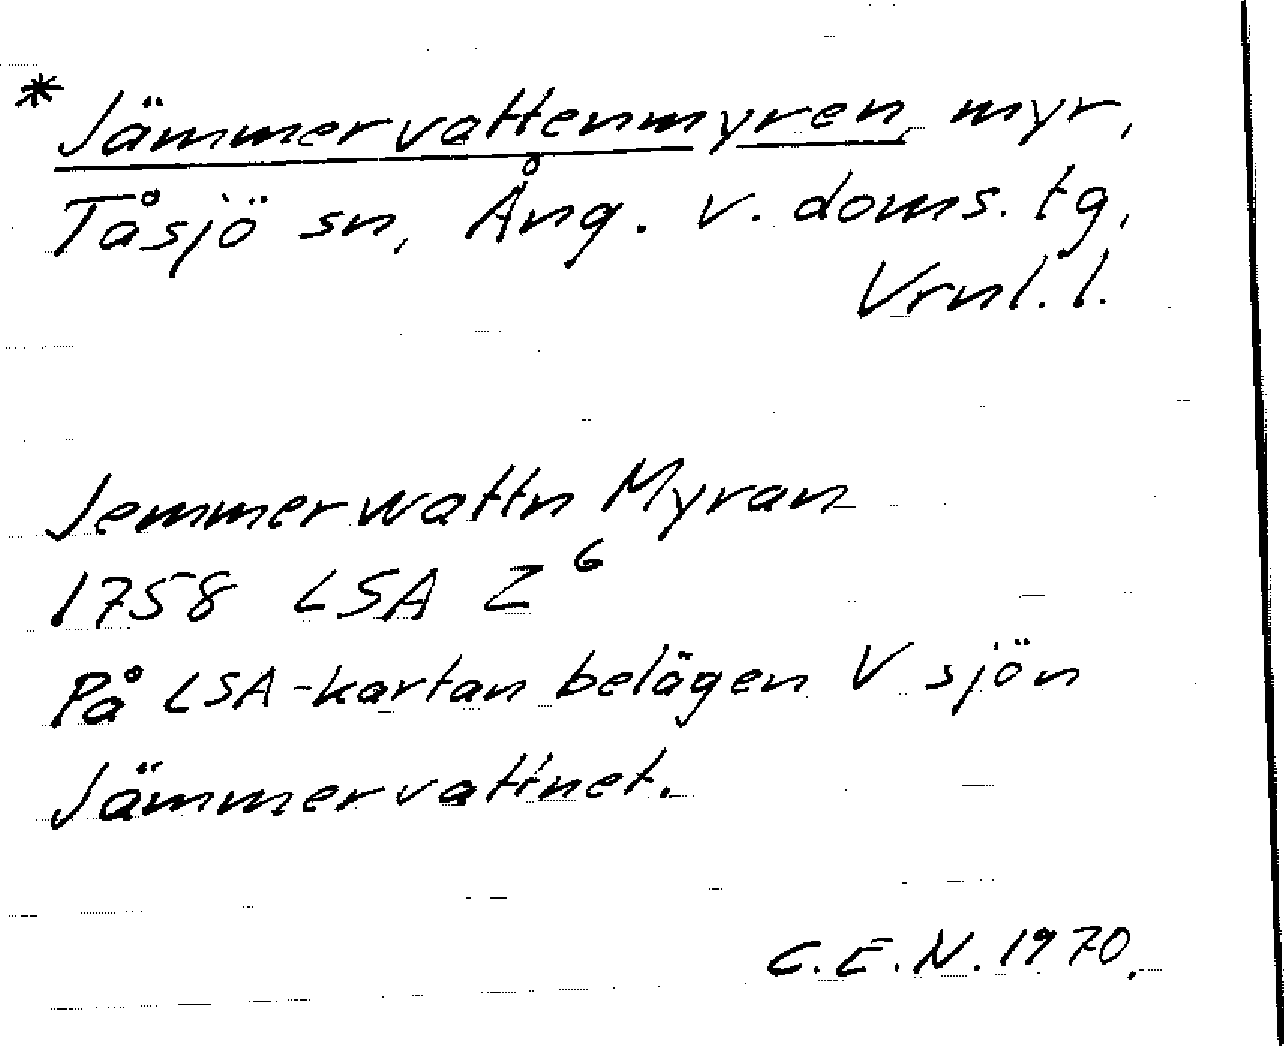 * Jämmervattenmyren, myr,
Tåsjö sn, Ång. v. doms. tg,
Vrnl. l.
Jemmerwattn Myran
1758 LSA Z⁶
På LSA-kartan belägen V sjön
Jämmervattnet.
C.E.N. 1970.